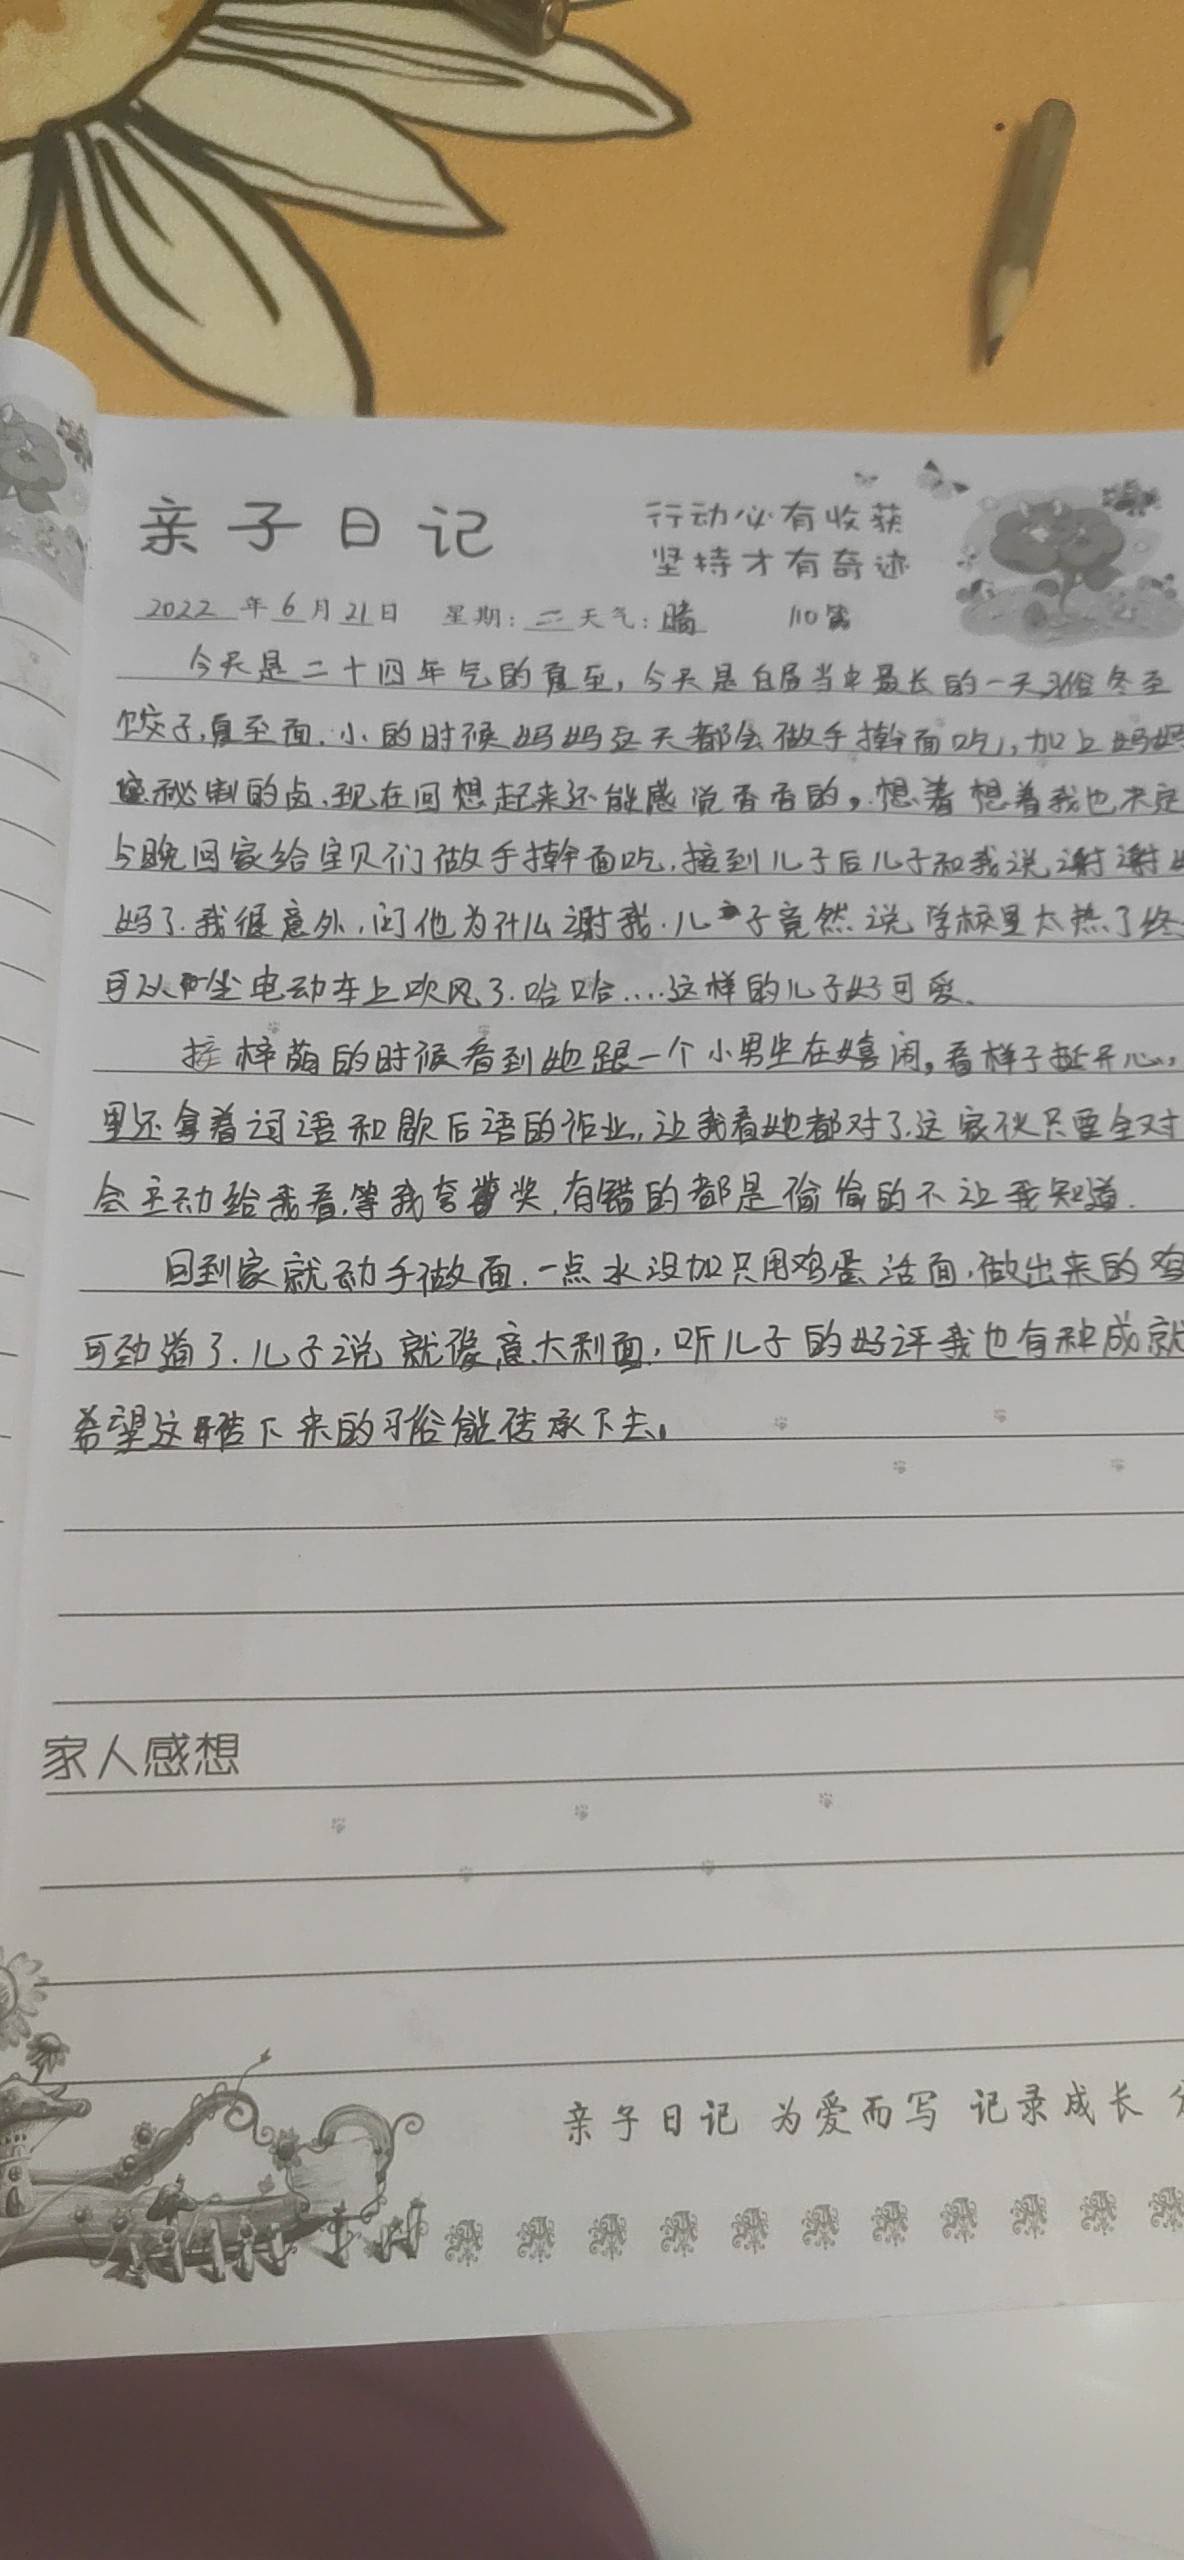 亲子日记
行动必有收获
坚持才有奇迹
2022年6月21日 星期:二 天气:晴 110篇
今天是二十四年气的夏至,今天是白昼当中最长的一天习俗冬至
饺子,夏至面.小的时候妈妈这天都会做手擀面吃,加上妈妈
秘制的卤,现在回想起来还能感觉香香的,想着想着我也决定
今晚回家给宝贝们做手擀面吃.接到儿子后儿子和我说谢谢妈
妈了.我很意外,问他为什么谢我.儿子竟然说学校里太热了终
可以坐电动车上吹风了.哈哈....这样的儿子好可爱.
接梓萌的时候看到她跟一个小男生在嬉闹,看样子挺开心,
里还拿着词语和歇后语的作业,让我看她都对了.这家伙只要全对
会主动给我看.等我夸奖.有错的都是偷偷的不让我知道.
回到家就动手做面.一点水没加只用鸡蛋活面,做出来的鸡
可劲道了.儿子说就像意大利面,听儿子的好评我也有种成就
希望这传下来的习俗能传承下去.
家人感想
亲子日记 为爱而写 记录成长